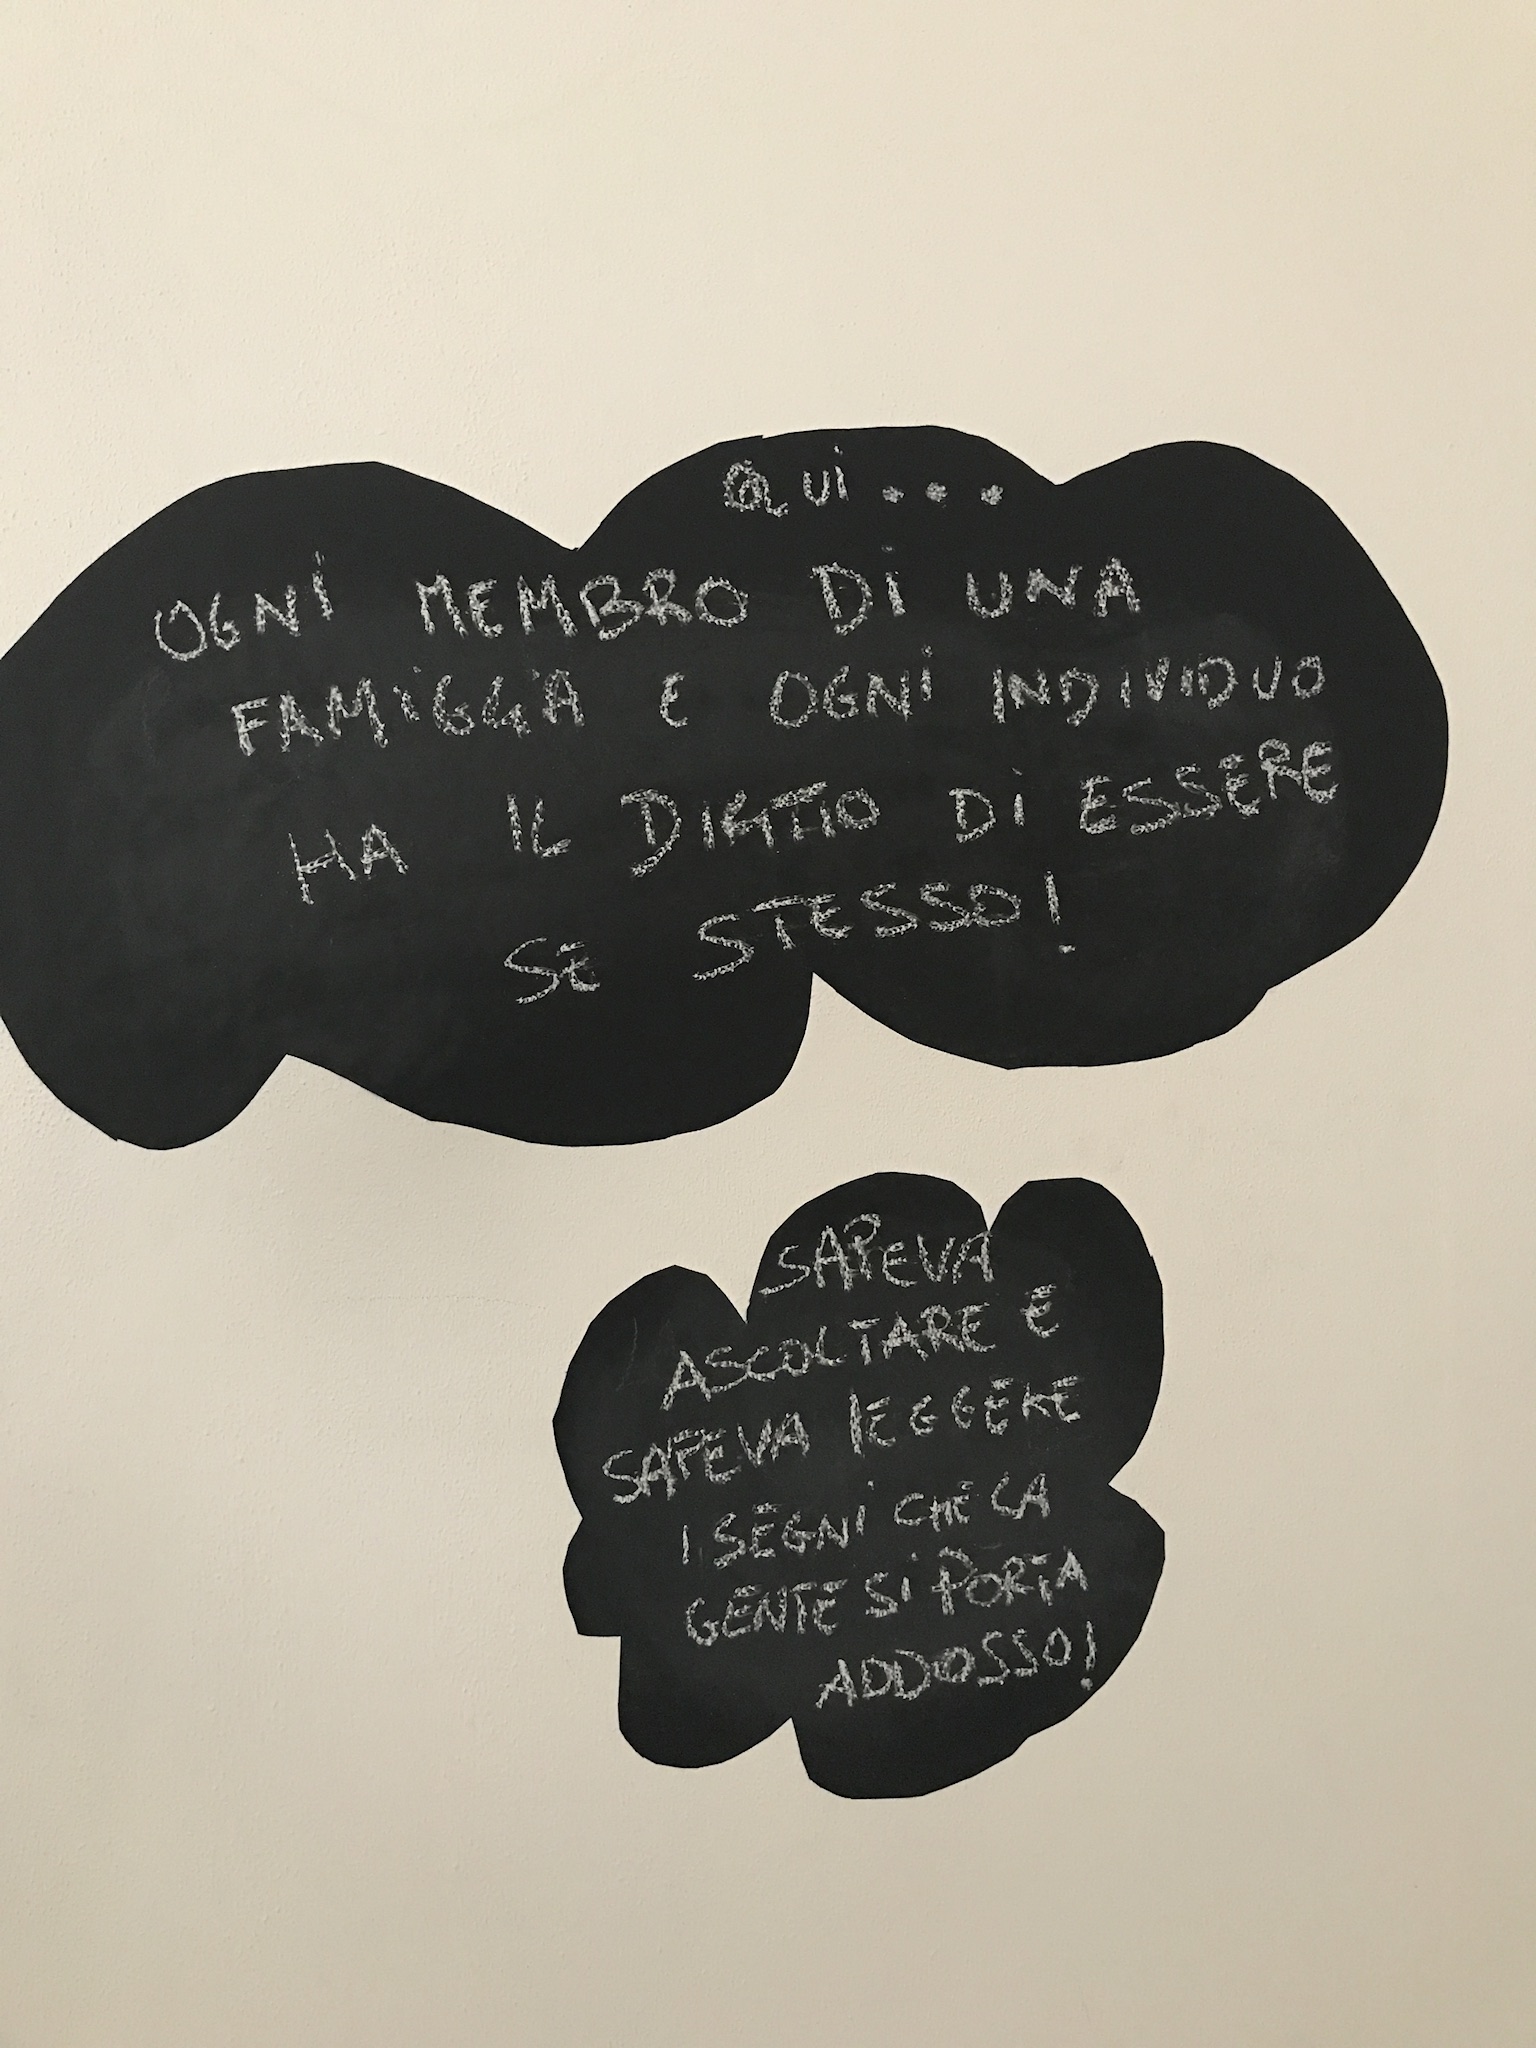 Qui...
OGNI MEMBRO DI UNA
FAMIGGIA E OGNI INDIVIDUO
HA IL DIRTTIO DI ESSERE
SE STESSO!
SAPEVA
ASCOLTARE E
SAPEVA lEGGERE
I SEGNI CHE LA
GENTE SI PORTA
ADDOSSO!